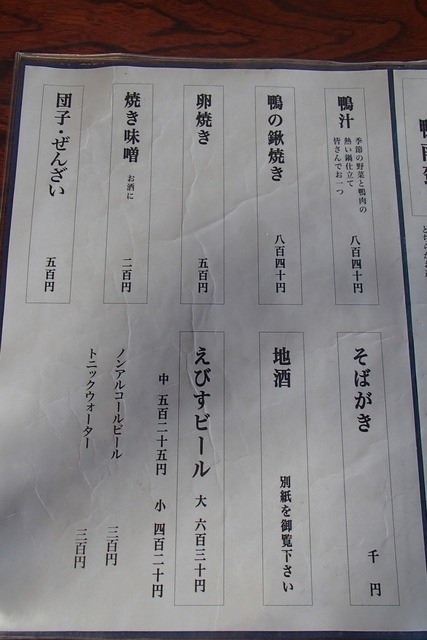 鴨汁
季節の野菜と鴨肉の
熱い鍋仕立て
皆さんでお一つ
八百四十円
鴨の鍬焼き
八百四十円
卵焼き
五百円
焼き味噌
お酒に
二百円
団子・ぜんざい
五百円
そばがき
千円
地酒
別紙を御覧下さい
えびすビール
大 六百三十円
中 五百二十五円
小 四百二十円
ノンアルコールビール
三百円
トニックウォーター
三百円